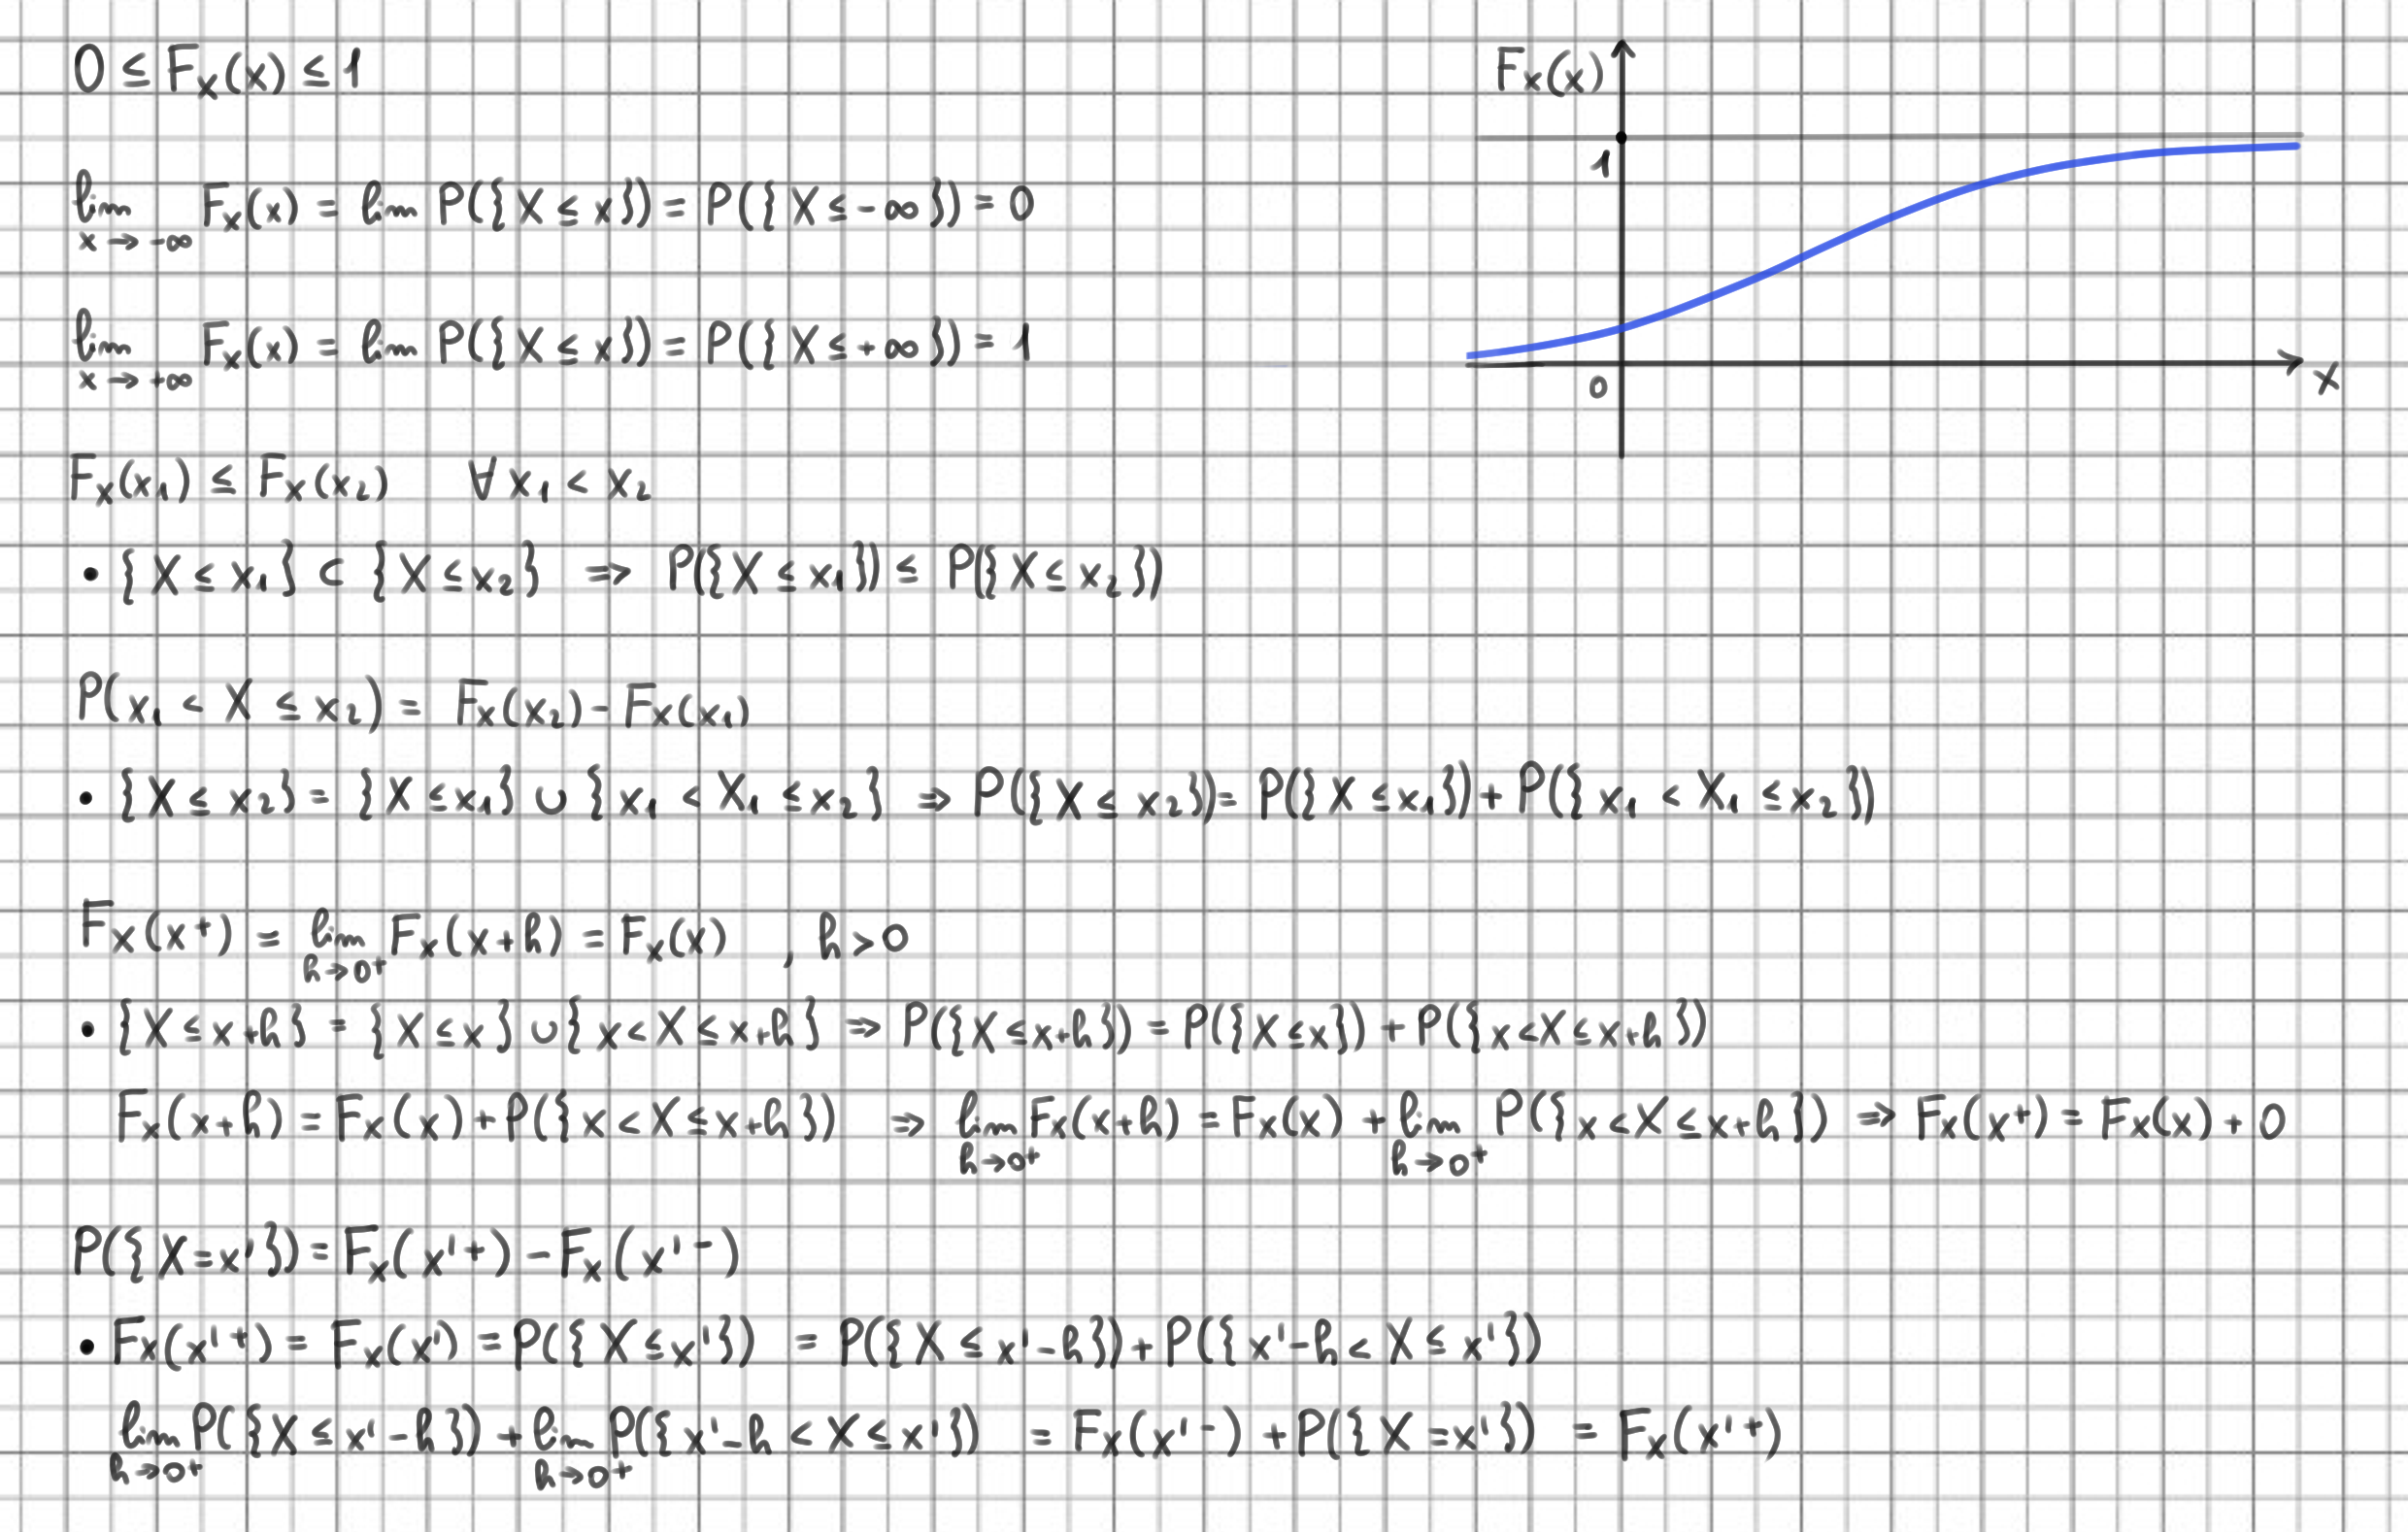 0 ≤ Fx(x) ≤ 1
lim x→-∞ Fx(x) = lim P({X ≤ x}) = P({X ≤ -∞}) = 0
lim x→+∞ Fx(x) = lim P({X ≤ x}) = P({X ≤ +∞}) = 1
Fx(x)
1
0
x
Fx(x₁) ≤ Fx(x₂) ∀ x₁ < x₂
• {X ≤ x₁} ⊂ {X ≤ x₂} ⇒ P({X ≤ x₁}) ≤ P({X ≤ x₂})
P(x₁ < X ≤ x₂) = Fx(x₂) - Fx(x₁)
• {X ≤ x₂} = {X ≤ x₁} ∪ {x₁ < X₁ ≤ x₂} ⇒ P({X ≤ x₂}) = P({X ≤ x₁}) + P({x₁ < X₁ ≤ x₂})
Fx(x⁺) = lim h→0⁺ Fx(x+h) = Fx(x) , h > 0
• {X ≤ x+h} = {X ≤ x} ∪ {x < X ≤ x+h} ⇒ P({X ≤ x+h}) = P({X ≤ x}) + P({x < X ≤ x+h})
Fx(x+h) = Fx(x) + P({x < X ≤ x+h}) ⇒ lim h→0⁺ Fx(x+h) = Fx(x) + lim h→0⁺ P({x < X ≤ x+h}) ⇒ Fx(x⁺) = Fx(x) + 0
P({X = x'}) = Fx(x'⁺) - Fx(x'⁻)
• Fx(x'⁺) = Fx(x') = P({X ≤ x'}) = P({X ≤ x'-h}) + P({x'-h < X ≤ x'})
lim h→0⁺ P({X ≤ x'-h}) + lim h→0⁺ P({x'-h < X ≤ x'}) = Fx(x'⁻) + P({X = x'}) = Fx(x'⁺)